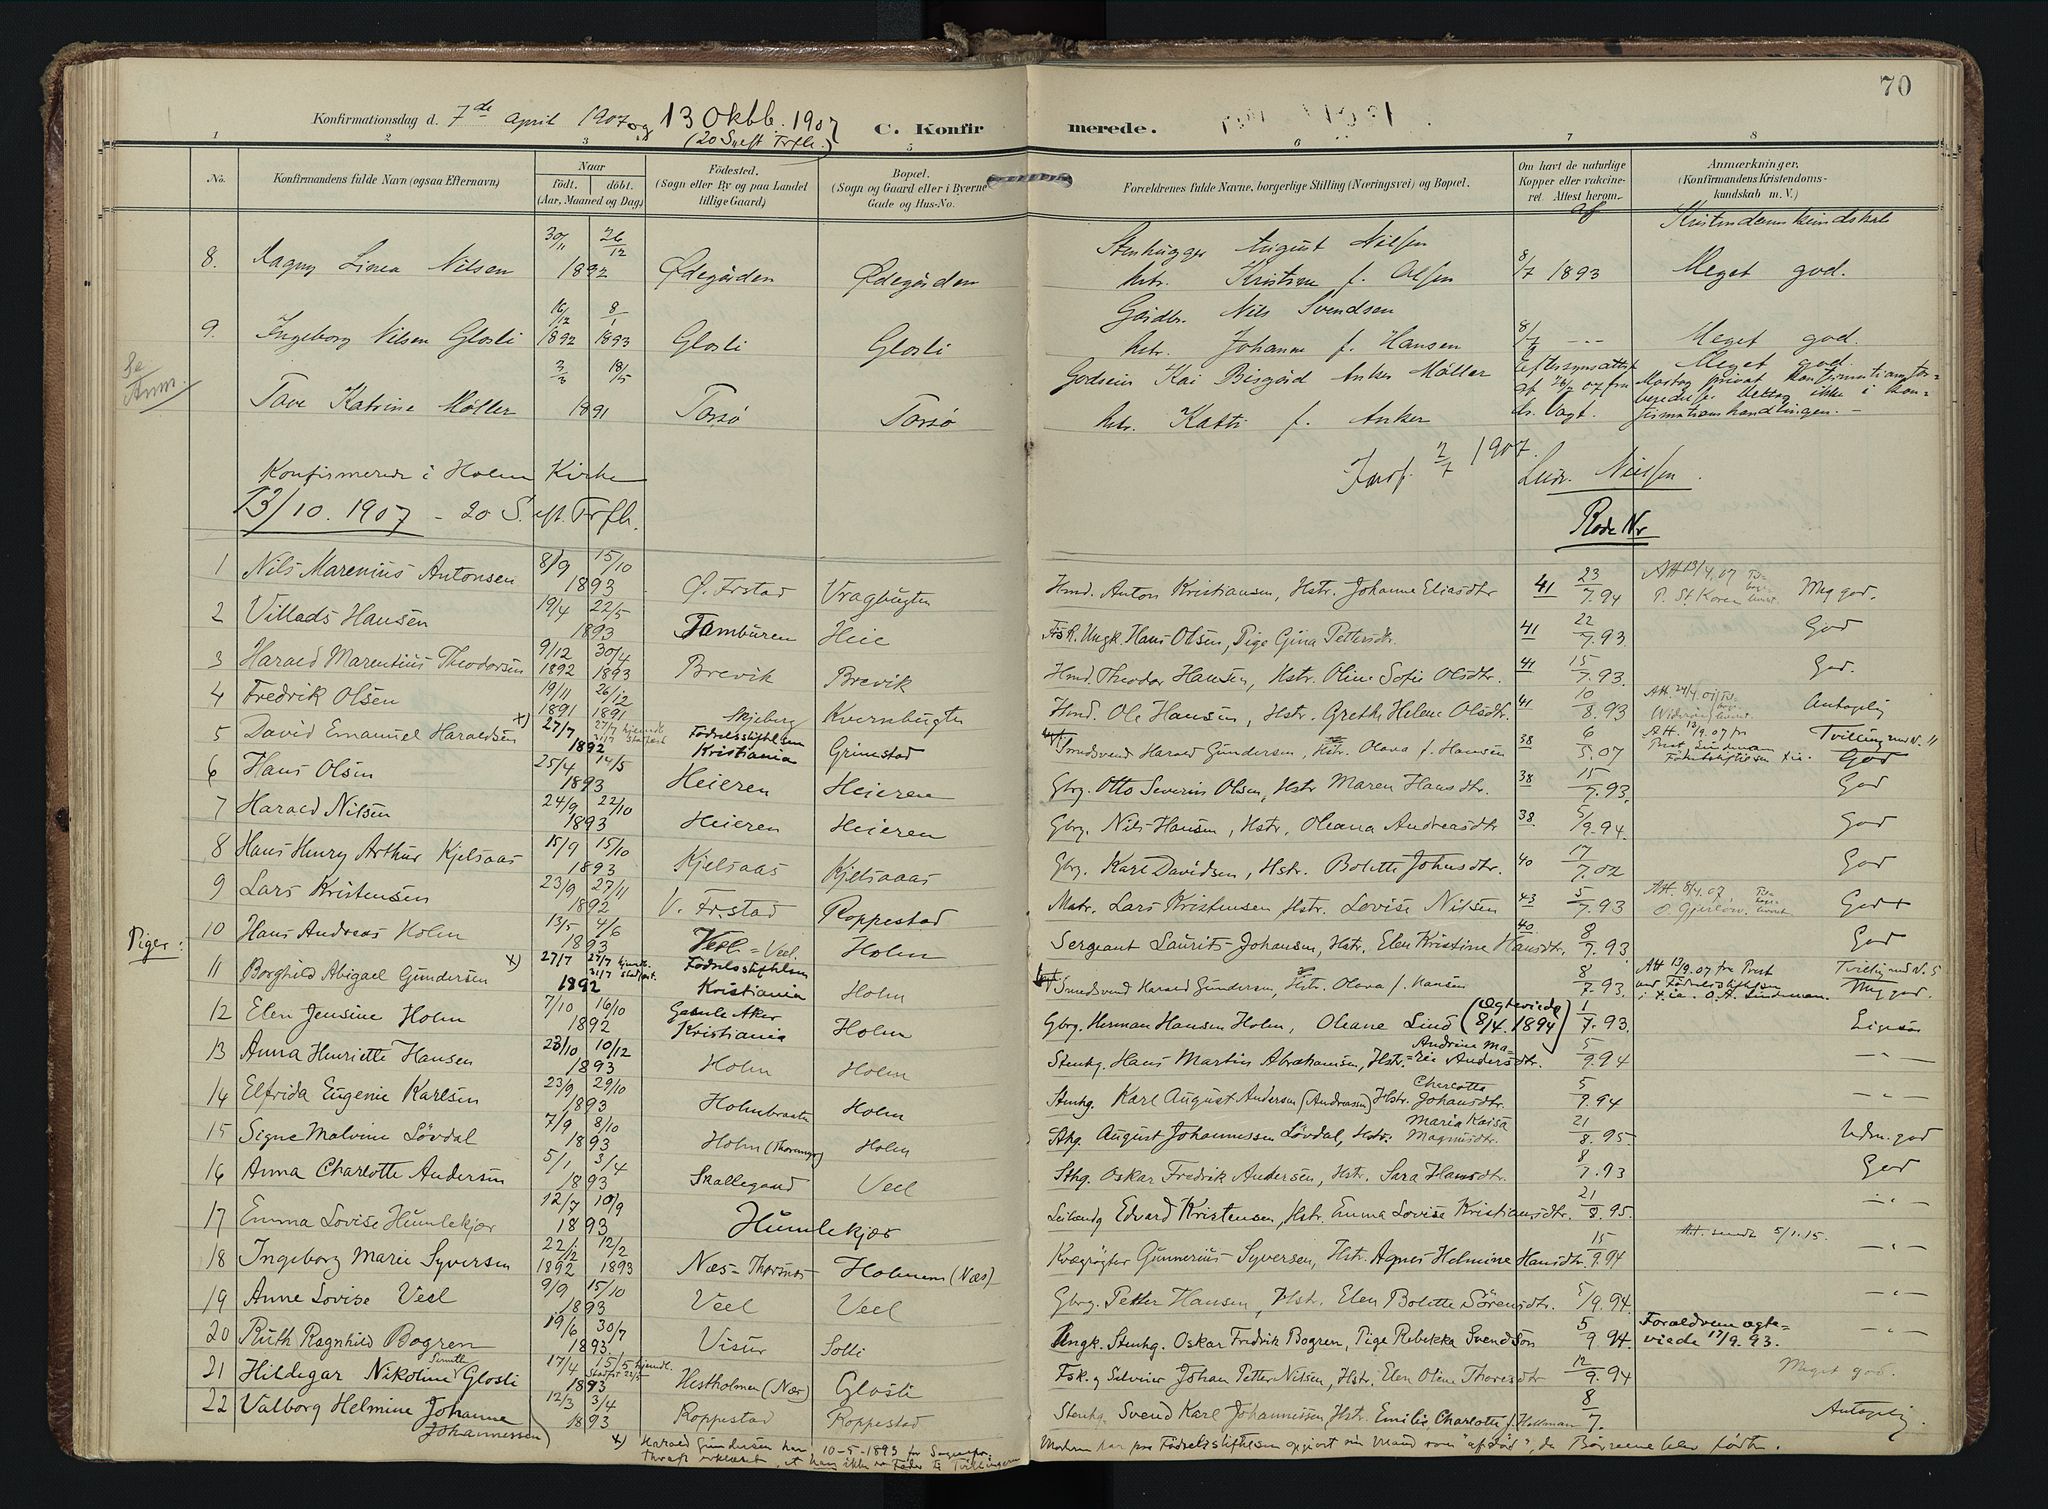 70
Konfirmationsdag d. 7de April 1907 og 13 Oktb. 1907 C. Konfirmerede.
(20 S. eft. Trfh.)
1 2 3 5 6 7 8
No. Konfirmandens fulde Navn (ogsaa Efternavn) Naar födt. döbt. (Aar, Maaned og Dag) Födested. (Sogn eller By og paa Landet tillige Gaard) Bopæl. (Sogn og Gaard eller i Byerne Gade og Hus-No. Forældrenes fulde Navne, borgerlige Stilling (Næringsvei) og Bopæl. Om havt de naturlige Kopper eller vakcineret. Attest herom. Anmærkninger. (Konfirmandens Kristendomskundskab m. V.)
Kristendomskundskab
8. Ragny Linea Nilsen 30/11 26/12 1892 Ødegården Ødegården Stenhugger August Nilsen Hstr. Kristine f. Olsen 8/7 1893 Meget god.
9. Ingeborg Nilsen Glosli 16/12 1892 8/1 1893 Glosli Glosli Gårdbr. Nils Svendsen Hstr. Johanne f. Hansen 8/7 Meget god.
Se Anm.
Tove Katrine Møller 3/3 18/5 1891 Torsø Torsø Godseier Kai Bisgård Anker Møller Hstr. Katti f. Anker Meget god. Mottog privat Konfirmationsforberedelse deltog ikke i konfirmationshandlingen. -
2/7 1907.
Ludv. Nielsen
Konfirmerede i Holm Kirke
13/10. 1907 - 20 S. eft. Trfh.
Rode Nr
1 Nils Marenius Antonsen 8/9 15/10 1893 Ø. Frstad Vragbugten Hmd. Anton Kristiansen, Hstr. Johanne Eliasdtr 41 23/7.94 Att 13/4.07 P. St. Koren Meg god.
2 Villads Hansen 19/4 22/5 1893 Tamburen Heie Fsk. Ungk. Hans Olsen, Pige Gina Pettersdtr. 41 22/7.93 God
3 Harald Marentius Theodorsen 9/12 1892 30/4 1893 Brevik Brevik Hmd. Theodor Hansen, Hstr. Oline Sofie Olsdtr. 41 15/7.93. God.
4 Fredrik Olsen 19/11 1891 26/12 1891 Skjeberg Kvernbugten Hmd. Ole Hansen, Hstr. Grethe Helene Olsdtr. 41 10/8.93 Antagelig
5 David Emanuel Haraldsen x) 27/7 1892 Födselsstiftelsen Kristiania Grimstad Smedsvend Harald Gundersen, Hstr. Olava f. Hansen 38 6/5.07 Att. 13/9.07 fra Prest Lindeman Födselsstiftelsen X.ia. Tvilling med N. 11 God
6 Hans Olsen 25/4 14/5 1893 Heieren Heieren Gbrg. Otto Severin Olsen, Hstr Maren Hansdtr. 38 15/7.93. God
7 Harald Nilsen 24/9 22/10 1893 Heieren Heieren Gbrg. Nils Hansen, Hstr. Oleana Andreasdtr 38. 5/9.94. God
8 Hans Henry Arthur Kjelsaas 15/9 15/10 1893 Kjelsaas Kjelsaaas Gbrg. Karl Davidsen, Hstr. Bolette Johnsdtr. 40 17/7.02 God
9 Lars Kristensen 23/9 27/11 1892 V. Fr.stad Roppestad Matr. Lars Kristensen Hstr. Lovise Nilsen 43 5/7.93 Att. 8/4.07 O. Gjerløw. God +
10 Hans Andreas Holm 13/5 4/6 1893 Veel = Veel. Holm Sergeant Laurits Johansen, Hstr. Elen Kristine Hansdtr. 40. 8/7.93. God
Piger:
11 Borghild Abigael Gundersen x) 27/7 1892 Födselsstiftelsen Kristiania Holm Smedsvend Harald Gundersen, Hstr. Olava f. Hansen 8/7.93. Att 13/9.07 fra Prest ved Födselsstiftelsen i X.ia. O. A. Lindeman. Tvilling med N. 5 Meg god.
12 Elen Jensine Holm 7/10 16/10 1892 Gamle Aker Kristiania Holm Gbrg. Herman Hansen Holm, Oleane Lind (Ægteviede 8/4. 1894) 1/7.93. Ligesaa
13 Anna Henriette Hansen 23/10 10/12 1893 Holm Holm Stenhg. Hans Martin Abrahamsen, Hstr. Andrine Marie Andersdtr. 5/9.94 - „ -
14 Elfrida Eugenie Karlsen 23/9 29/10 1893 Holmbraaten Holm Stenhg. Karl August Andersen (Andreassen) Hstr. Charlotte Johansdtr. 5/9.94 - „ -
15 Signe Malvine Lövdal 7/9 8/10 1893 Holm Holm Sthg. August Johannessen Lövdal, Hstr. Maria Kaisa Magnusdtr. 21/8.95 Udm. god
16 Anna Charlotte Andersen 5/1 3/4 1893 Skallegaard Veel Sthg. Oskar Fredrik Andersen, Hstr. Sara Hansdtr. 8/7.93 God
17 Emma Lovise Humlekjær 12/7 10/9 1893 Humlekjær Leilændg Edvard Kristensen, Hstr. Emma Lovise Kristiansdtr. 21/8.95. - „ -
18 Ingeborg Marie Syversen 22/12 1892 12/2 1893 Næs - Thorsnæs Holmen (Næs) Kvægrögter Gunnerius Syversen, Hstr. Agnes Helmine Hansdtr. 15/9.94 Att. sendt 5/1.15. - „ -
19 Anne Lovise Veel 9/9 15/10 1893 Veel Veel Gbrg. Petter Hansen, Hstr. Elen Bolette Sörensdtr. 5/9.94. - „ -
20 Ruth Ragnhild Bogren 19/6 30/7 1893 Visur Solli Ungk. Stenhg. Oskar Fredrik Bogren, Pige Rebekka Svendson 5/9.94. Forældrene ægteviede 17/9.93. - „ -
21 Hildegar Nikoline Glosli 17/4 15/5 hjemdt. 1893 Hestholmen (Næs) Glosli Fsk. og Selveier Johan Petter Nilsen, Hstr. Elen Oline Thoresdtr 12/9.94 Meget god.
22 Valborg Helmine Johanne Johannessen) 12/3 3/4 1893 Roppestad Roppestad Stenhg. Svend Karl Johannissen, Hstr. Emilie Charlotte f. Hallman 8/7. Antagelig.
x) Harald Gundersen har 10-5-1893 for Sogneprs. Thrap erklæret, at han ikke er Fader til Tvillingerne
Moderen har paa Födselsstiftelsen opgivet sin Mand som "afdød", da Börnene blev födte.